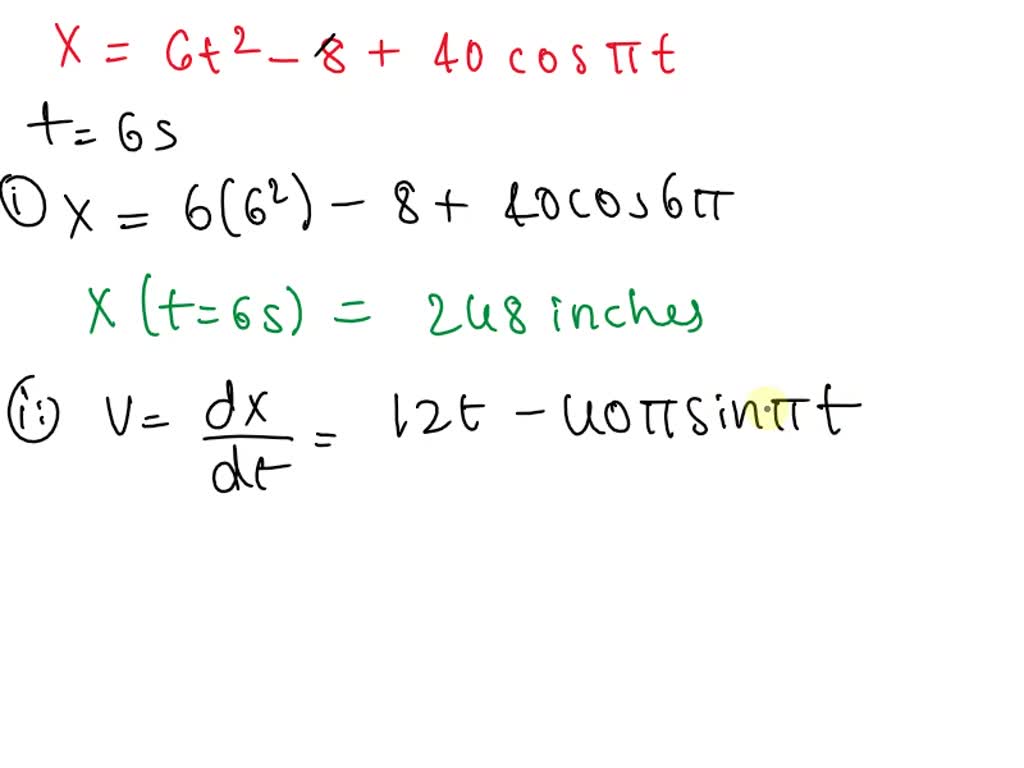 x = 6t² - 8 + 40 cos πt
t = 6s
(i) x = 6(6²) - 8 + 40cos6π
x (t=6s) = 248 inches
(ii) v = dx/dt = 12t - 40πsinπt